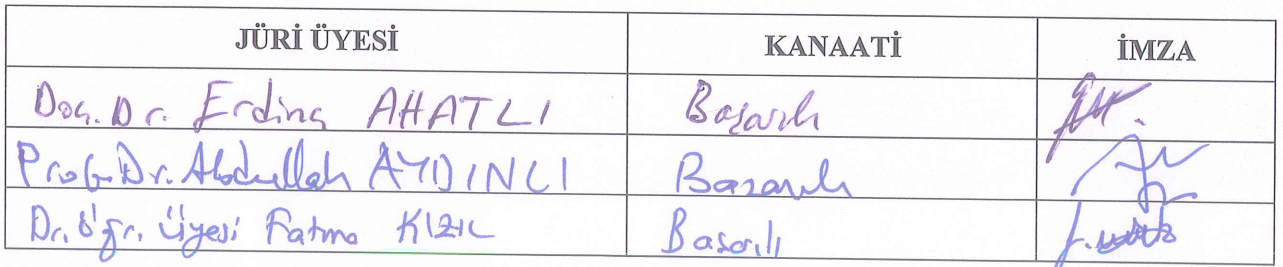 JÜRİ ÜYESİ KANAATİ İMZA
Doç. Dr. Erdinç AHATLI Başarılı
Prof. Dr. Abdullah AYDINLI Başarılı
Dr. Öğr. Üyesi Fatma KIZIL Başarılı